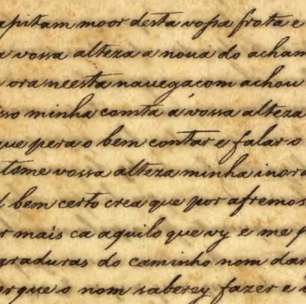 apitam moor desta vossa frota e
a vossa alteza a noua do acham
ora neesta nauegaçom achou
sso minha comta a vossa alteza
que pera o bem contar e falar o
tome vossa alteza minha inora
bem certo crea que por afremos
r mais ca aquilo que vy e me p
graduras do caminho nom dar
orque o nom saberey fazer e